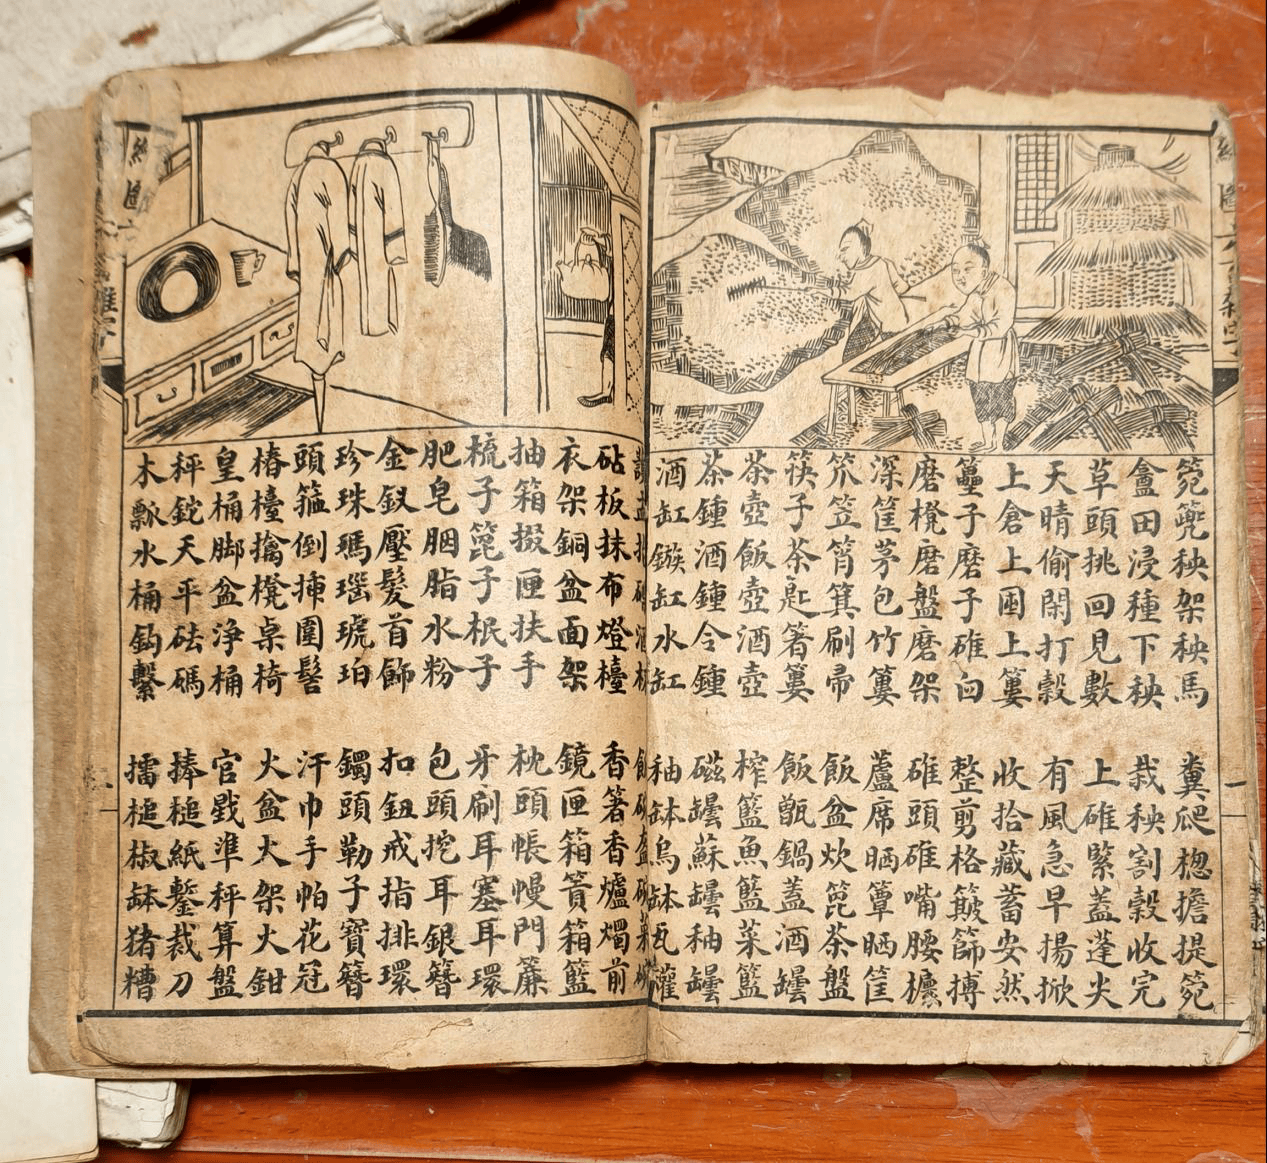 箢篼秧架秧馬 糞爬楤擔提箢
盦田浸種下秧 栽秧割穀收完
草頭挑回見數 上碓緊蓋蓬尖
天晴偷閑打穀 有風急早揚掀
上倉上囤上簍 收拾藏蓄安然
壟子磨子碓臼 整剪格簸篩摶
磨櫈磨盤磨架 碓頭碓嘴腰欀
深筐茅包竹簍 蘆席晒簟晒筐
笊笠筲箕刷帚 飯盆炊篦茶盤
筷子茶匙箸簍 飯甑鍋蓋酒罎
茶壺飯壺酒壺 榨籃魚籃菜籃
茶鍾酒鍾令鍾 磁罎蘇罎秞罎
酒缸鏃缸水缸 秞缽烏缽瓦罐
砧板抹布燈檯 香箸香爐燭前
衣架銅盆面架 鏡匣箱篢箱籃
抽箱掇匣扶手 枕頭帳幔門簾
梳子篦子桹子 牙刷耳塞耳環
肥皂胭脂水粉 包頭挖耳銀簪
金釵壓髮首飾 扣鈕戒指排環
珍珠瑪瑙琥珀 鐲頭勒子寶簪
頭箍倒插圍髻 汗巾手帕花冠
椿檯擒櫈桌椅 火盆火架火鉗
皇桶脚盆浄桶 官戥準秤算盤
秤鉈天平砝碼 捧槌紙鏨裁刀
木瓢水桶鈎繫 擂槌椒缽猪糟